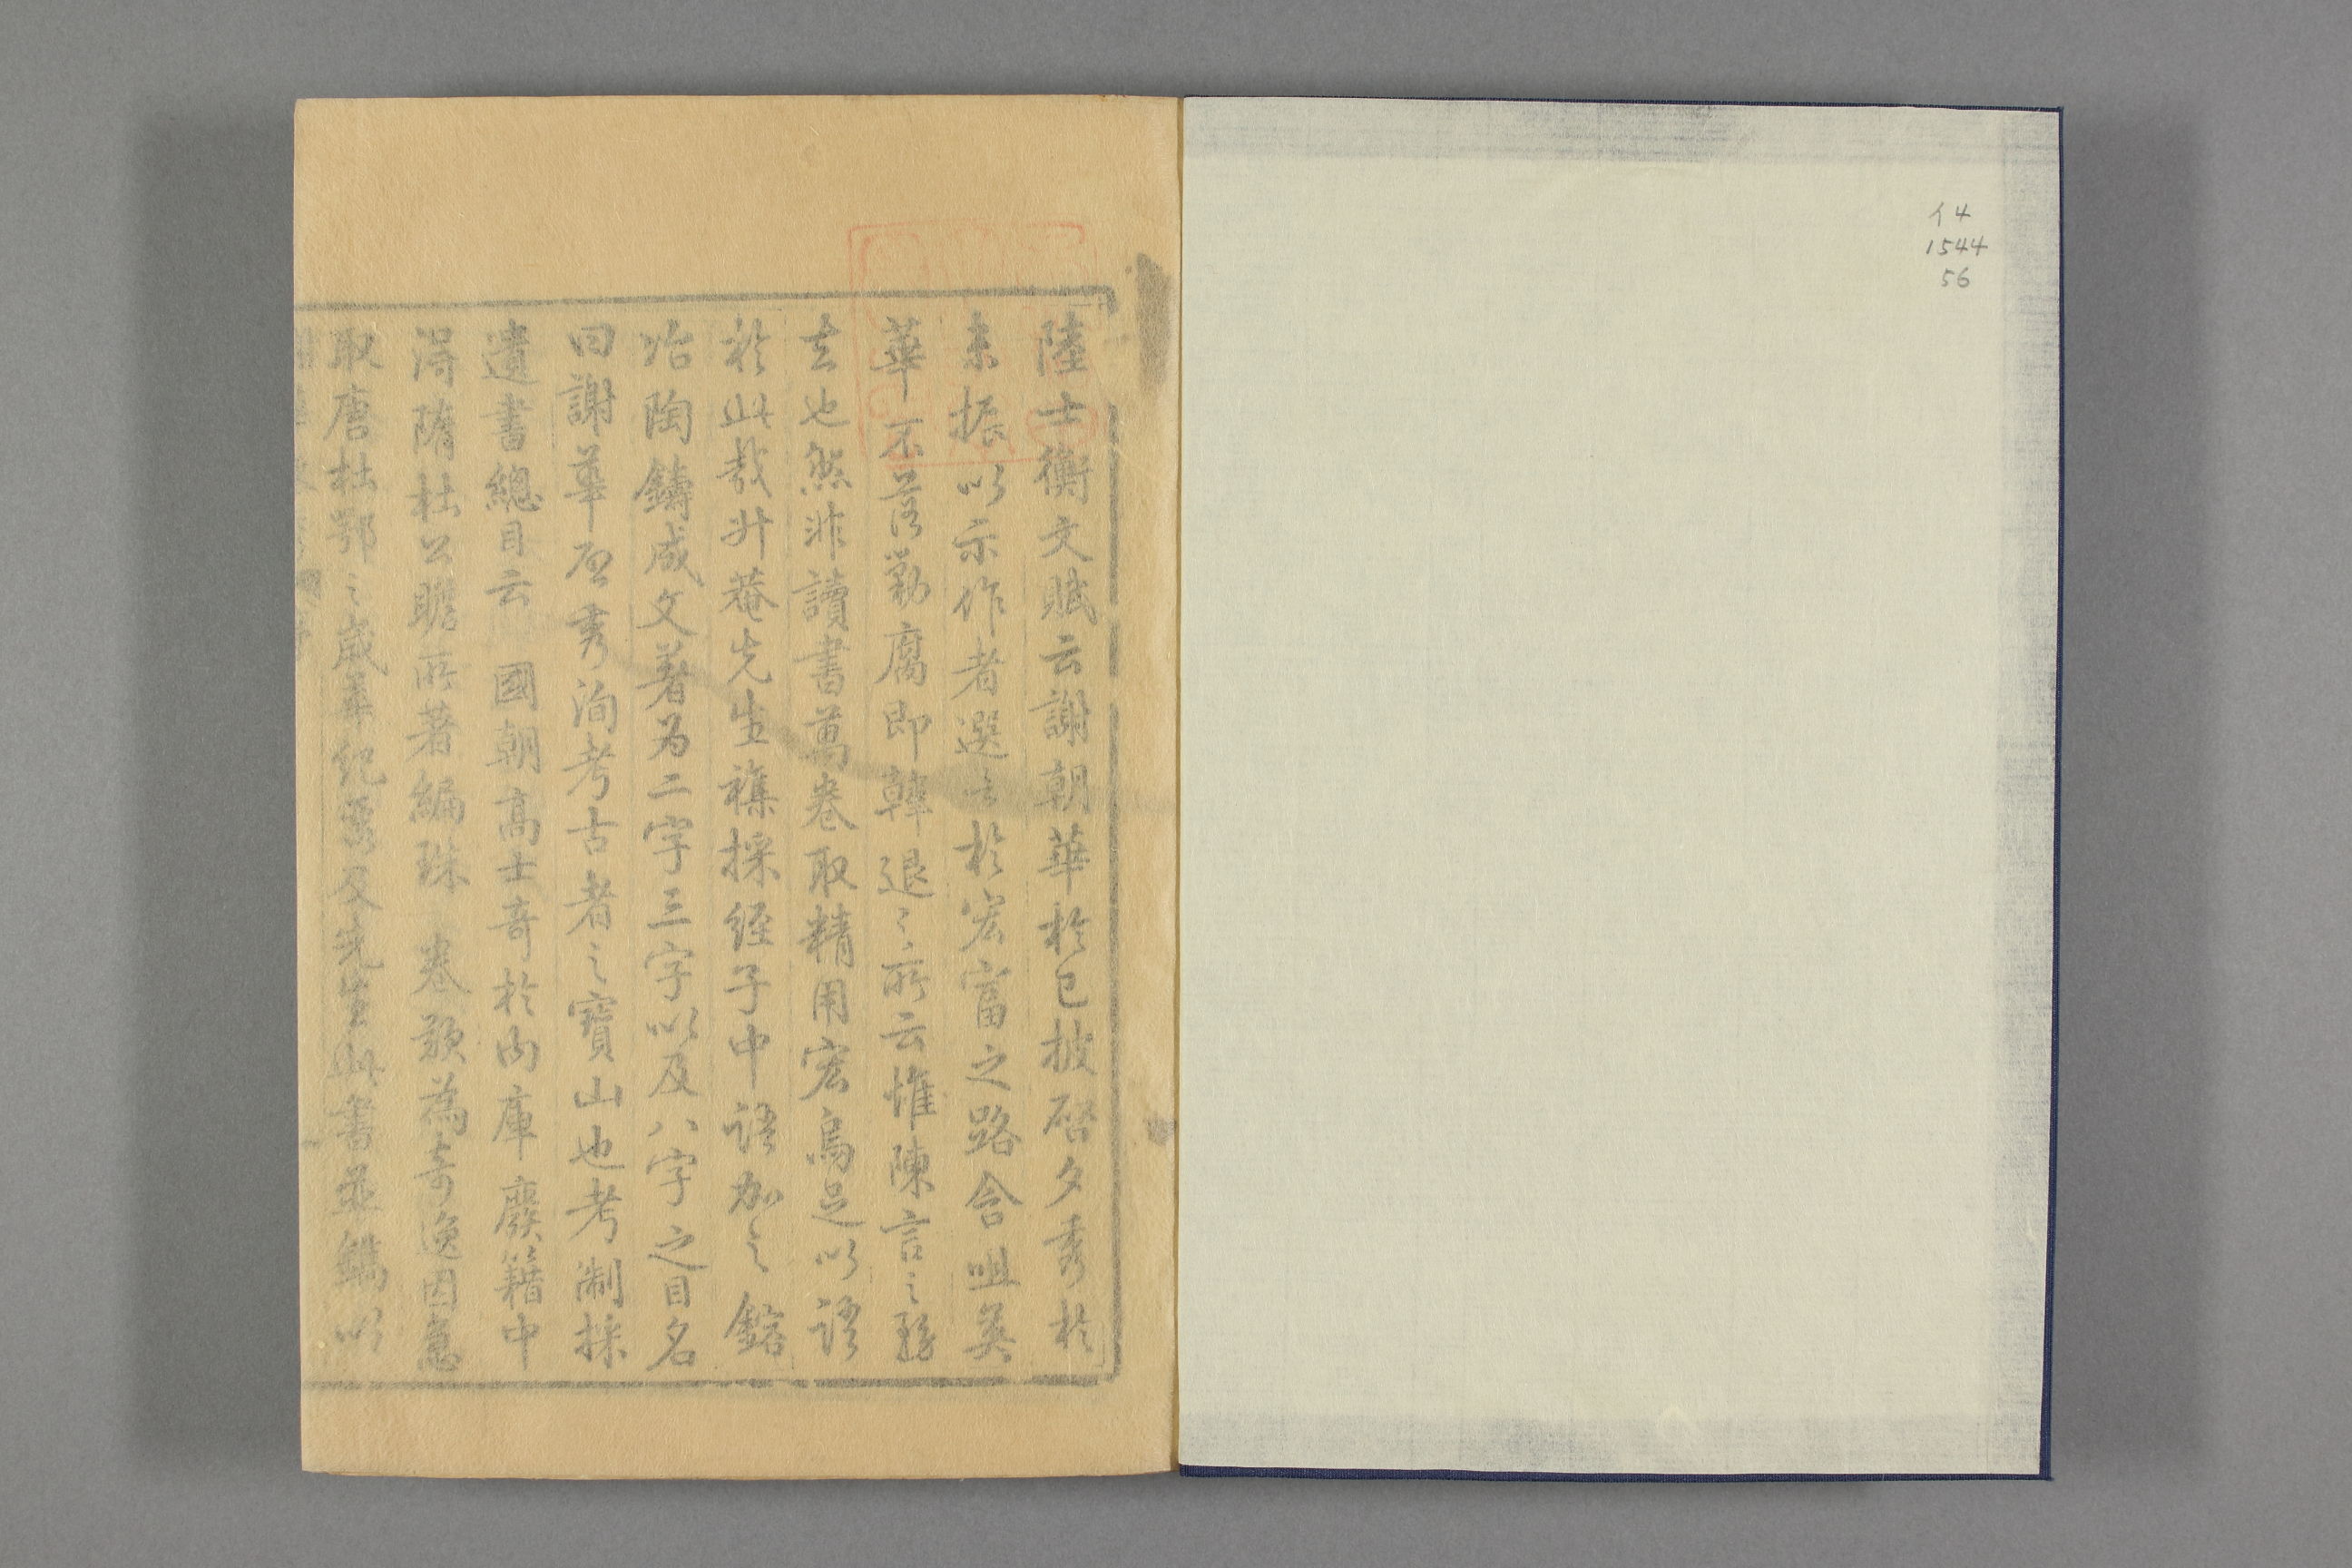 イ4
1544
56
陸士衡文賦云謝朝華於已披啓夕秀於
未振以示作者選言於宏富之路含咀英
華不落勦腐即韓退之所云惟陳言之務
去也然非讀書萬卷取精用宏烏足以語
於此哉升菴先生襍採經子中語加之鎔
冶陶鑄成文著為二字三字以及八字之目名
曰謝華啓秀洵考古者之寶山也考制採
遺書總目云 國朝高士奇於內庫廢籍中
得隋杜公瞻所著編珠 卷歎為奇逸因急
取唐杜鄂之歲華紀麗及先生此書並鐫以